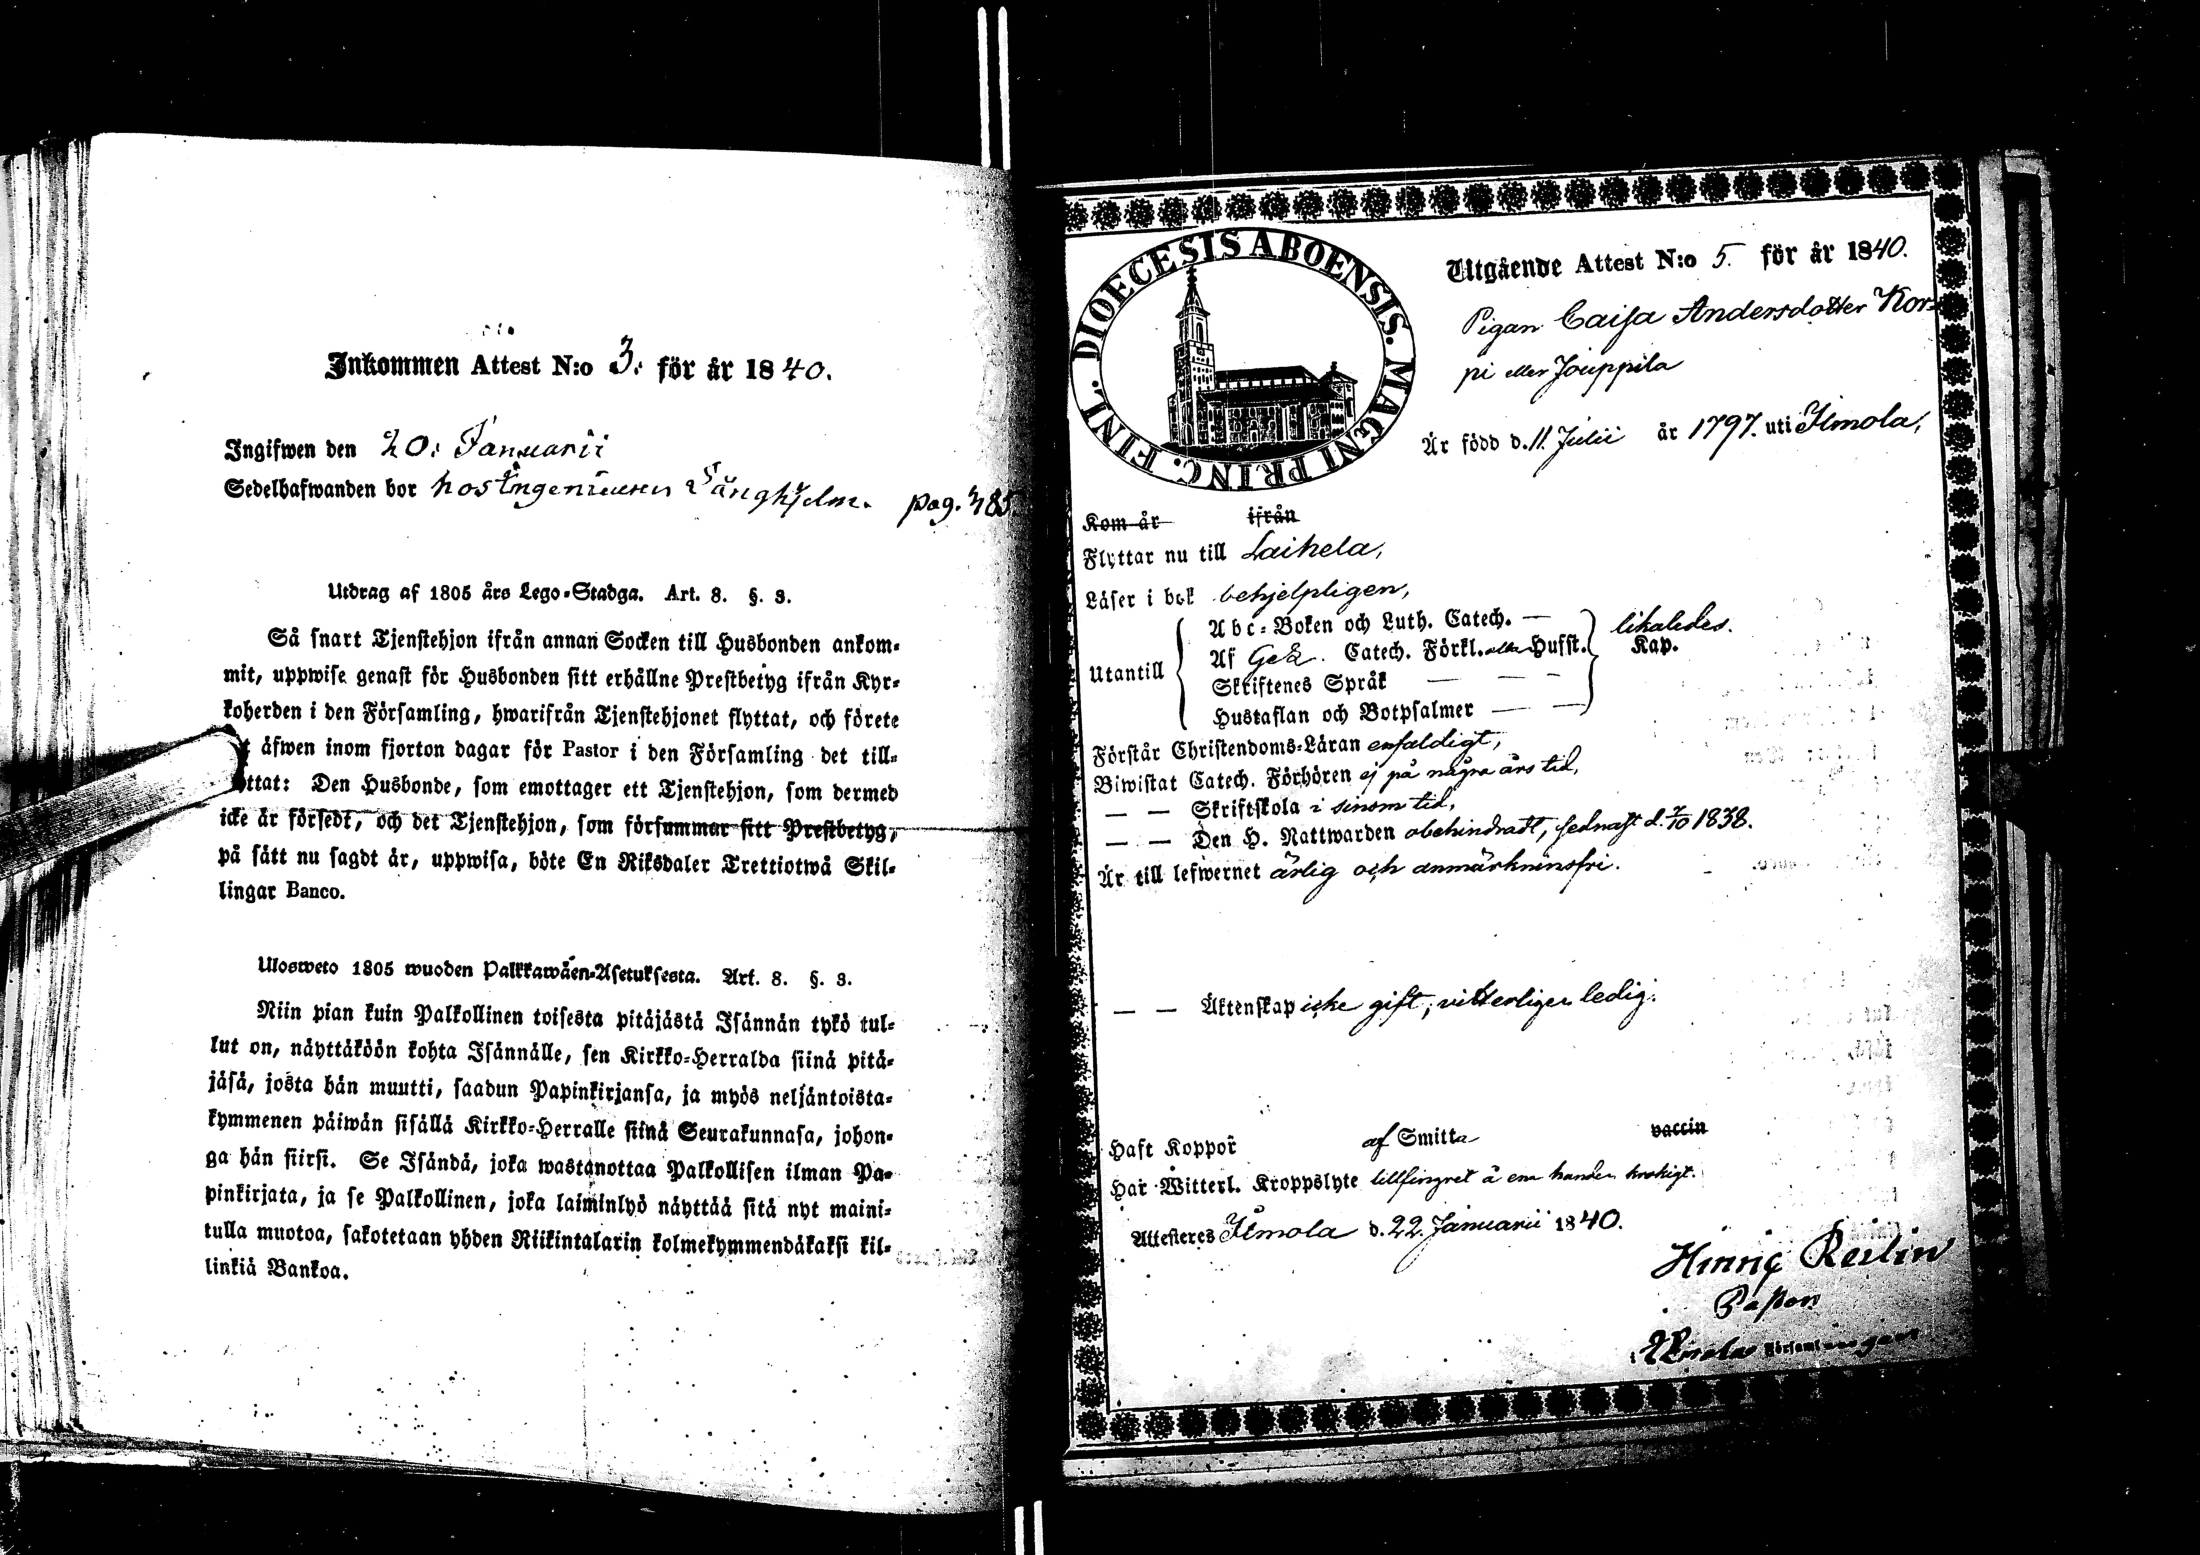 Inkommen Attest N:o 3. för år 1840.
Ingifwen den 20. Januarii
Sedelhafwanden bor hos Ingenieuren Långhjelm. pag. 485
Utdrag af 1805 års Lego-Stadga. Art. 8. §. 3.
Så snart Tjenstehjon ifrån annan Socken till Husbonden ankom-
mit, uppwise genast för Husbonden sitt erhållne Prestbetyg ifrån Kyr-
koherden i den Församling, hwarifrån Tjenstehjonet flyttat, och förete
åfwen inom fjorton dagar för Pastor i den Församling det till-
ttat: Den Husbonde, som emottager ett Tjenstehjon, som dermed
icke är försedt, och det Tjenstehjon, som försummar sitt Prestbetyg,
på sätt nu sagdt är, uppwisa, böte En Riksdaler Trettiotwå Skil-
lingar Banco.
Ulosweto 1805 wuoden Palkkawäen-Asetuksesta. Art. 8. §. 3.
Niin pian kuin Palkollinen toisesta pitäjästä Isännän tykö tul-
lut on, näyttäköön kohta Isännälle, sen Kirkko-Herralda siinä pitä-
jäsä, josta hän muutti, saadun Papinkirjansa, ja myös neljäntoista-
kymmenen päiwän sisällä Kirkko-Herralle siinä Seurakunnasa, johon-
ga hän siirsi. Se Isändä, joka wastanottaa Palkollisen ilman Pa-
pinkirjata, ja se Palkollinen, joka laiminlyö näyttää sitä nyt maini-
tulla muotoa, sakotetaan yhden Riikintalarin kolmekymmendäkaksi kil-
linkiä Bankoa.
DIOECESIS ABOENSIS. MAGNI PRINC. FINL.
Utgående Attest N:o 5. för år 1840.
Pigan Caisa Andersdotter Kor-
pi eller Jouppila
Är född d. 11. Julii år 1797. uti Ilmola,
Kom år ifrån
Flyttar nu till Laihela,
Läser i bok behjelpligen,
Utantill
Abc-Boken och Luth. Catech. — likaledes.
Af Gez. Catech. Förkl. eller Hufst. Kap.
Skriftenes Språk — — —
Hustaflan och Botpsalmer — —
Förstår Christendoms-Läran enfaldigt,
Biwistat Catech. Förhören ej på några års tid,
— — Skriftskola i sinom tid,
— — Den H. Nattwarden obehindradt, sednast d. 7/10 1838.
Är till lefwernet ärlig och anmärkninsfri.
— — Äktenskap icke gift, vitterligen ledig.
Haft Koppor af Smitta vaccin
Har Witterl. Kroppslyte lillfingret å ena handen krokigt.
Attesteres Ilmola d. 22. Januarii 1840.
Hinric Reslin
Pastor
i Ilmola Församlingar